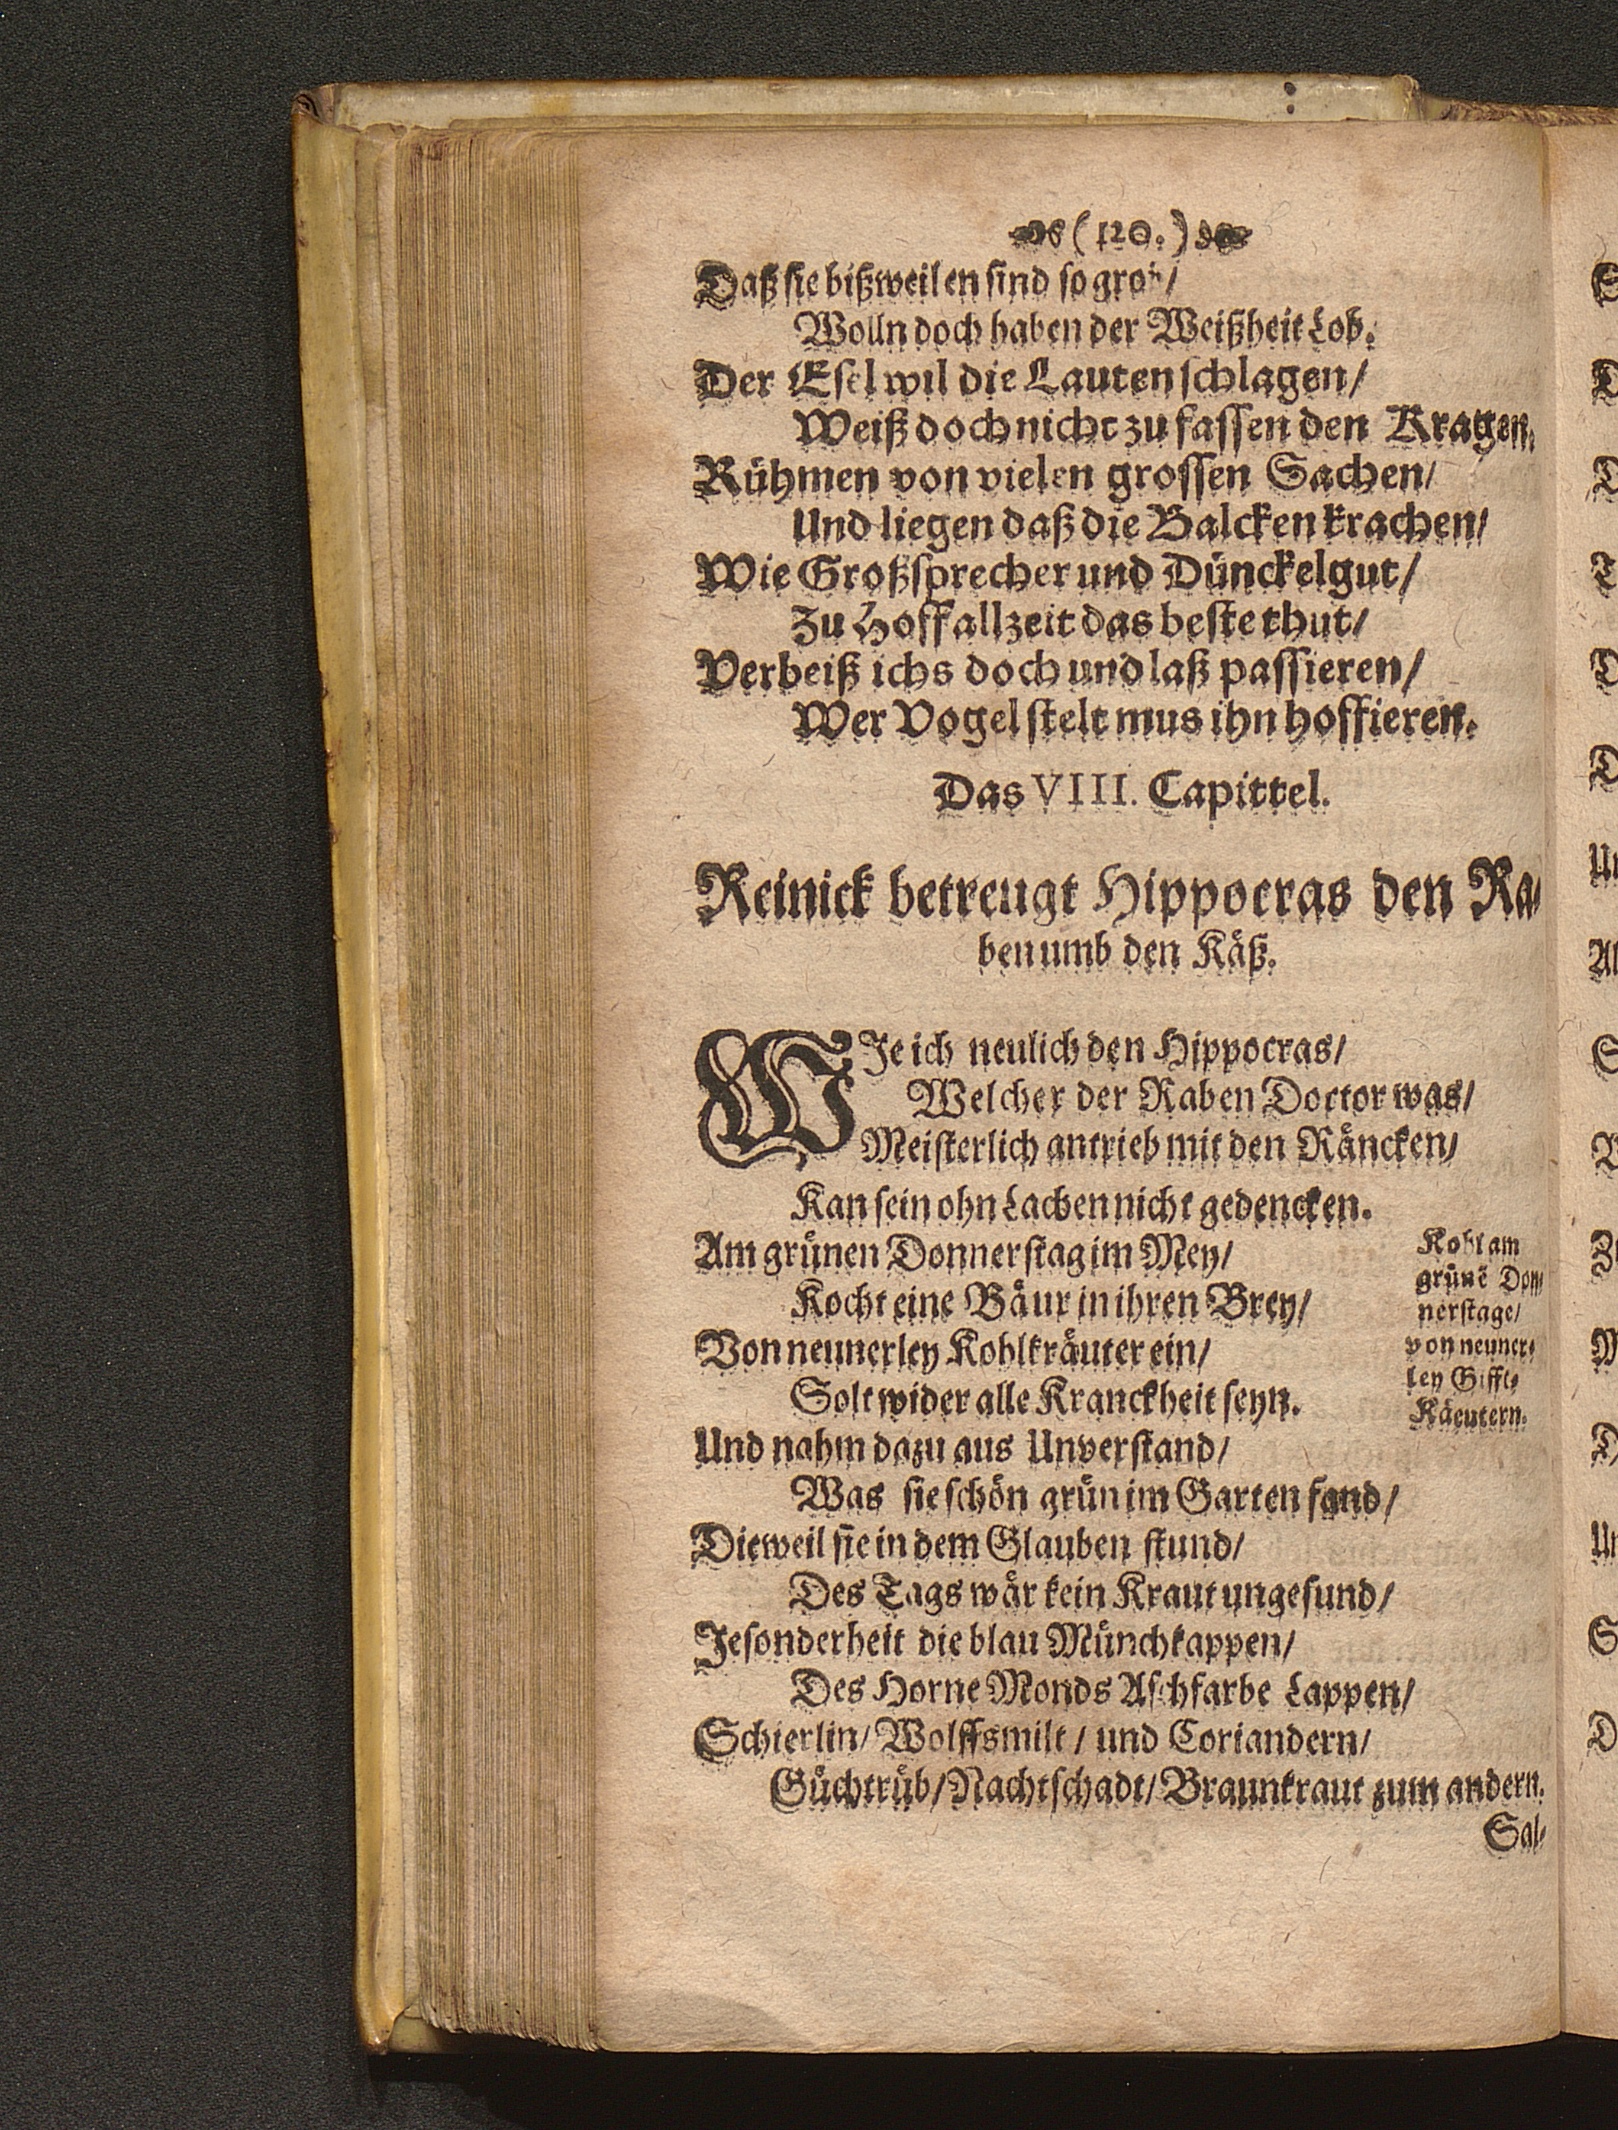 (120.)
Daß sie bißweilen sind so grob/
Wolln doch haben der Weißheit Lob.
Der Esel wil die Lauten schlagen/
Weiß doch nicht zu fassen den Kragen.
Rühmen von vielen grossen Sachen/
Und liegen daß die Balcken krachen/
Wie Großsprecher und Dünckelgut/
Zu Hoff allzeit das beste thut/
Verbeiß ichs doch und laß passieren/
Wer Vogel stelt mus ihn hoffieren.
Das VIII. Capittel.
Reinick betreugt Hippocras den Ra-
ben umb den Käß.
WJe ich neulich den Hippocras/
Welcher der Raben Doctor was/
Meisterlich antrieb mit den Räncken/
Kan sein ohn Lachen nicht gedencken.
Am grünen Donnerstag im Mey/
Kocht eine Bäur in ihren Brey/
Von neunerley Kohlkräuter ein/
Solt wider alle Kranckheit seyn.
Kohl am
grünē Don-
nerstage/
von neuner-
ley Gifft-
Käeutern.
Und nahm dazu aus Unverstand/
Was sie schön grün im Garten fand/
Dieweil sie in dem Glauben stund/
Des Tags wär kein Kraut ungesund/
Jesonderheit die blau Münchkappen/
Des Horne Monds Aschfarbe Lappen/
Schierlin/ Wolffsmilt/ und Coriandern/
Güchtrüb/ Nachtschadt/ Braunkraut zum andern.
Sal-